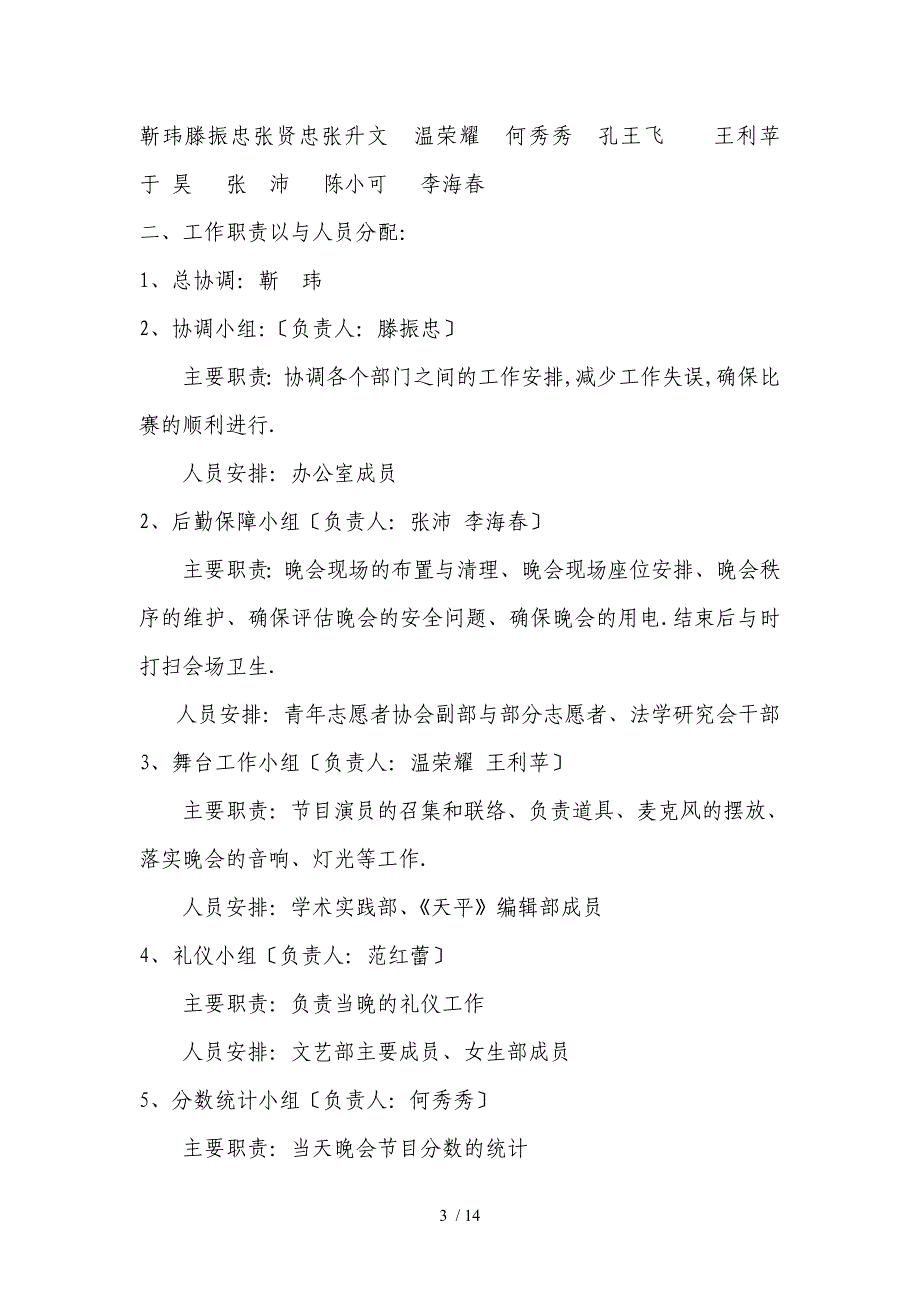 靳玮滕振忠张贤忠张升文　温荣耀　何秀秀　孔王飞　　王利苹
于 昊　 张　沛　 陈小可　 李海春
二、工作职责以与人员分配：
1、总协调：靳　玮
2、协调小组：〔负责人：滕振忠〕
主要职责：协调各个部门之间的工作安排,减少工作失误,确保比
赛的顺利进行.
人员安排：办公室成员
2、后勤保障小组〔负责人：张沛 李海春〕
主要职责：晚会现场的布置与清理、晚会现场座位安排、晚会秩
序的维护、确保评估晚会的安全问题、确保晚会的用电.结束后与时
打扫会场卫生.
人员安排：青年志愿者协会副部与部分志愿者、法学研究会干部
3、舞台工作小组〔负责人：温荣耀 王利苹〕
主要职责：节目演员的召集和联络、负责道具、麦克风的摆放、
落实晚会的音响、灯光等工作.
人员安排：学术实践部、《天平》编辑部成员
4、礼仪小组〔负责人：范红蕾〕
主要职责：负责当晚的礼仪工作
人员安排：文艺部主要成员、女生部成员
5、分数统计小组〔负责人：何秀秀〕
主要职责：当天晚会节目分数的统计
3 / 14